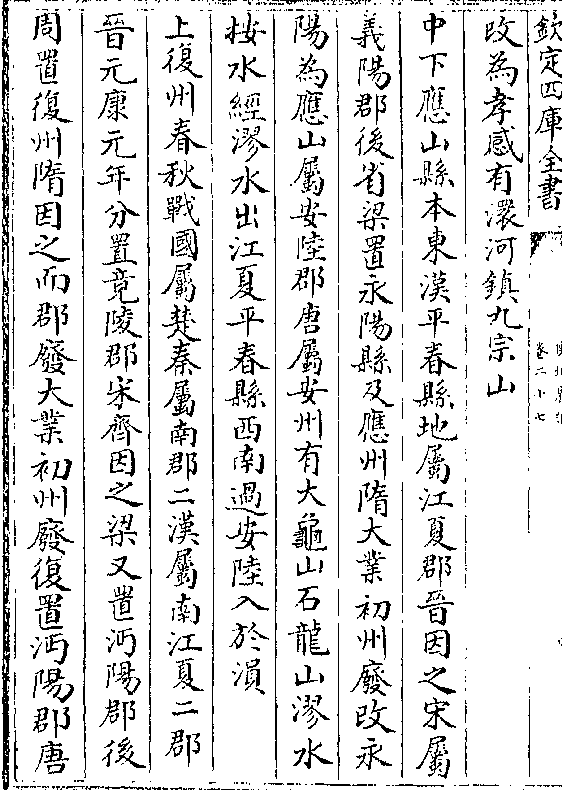 欽定四庫全書
卷二十七
改為孝感有澴河鎮九宗山
中下應山縣本東漢平春縣地屬江夏郡晉因之宋屬
義陽郡後省梁置永陽縣及應州隋大業初州廢改永
陽為應山屬安陸郡唐屬安州有大龜山石龍山漻水
按水經漻水出江夏平春縣西南過安陸入於溳
上復州春秋戰國屬楚秦屬南郡二漢屬南江夏二郡
晉元康元年分置竟陵郡宋齊因之梁又置沔陽郡後
周置復州隋因之而郡廢大業初州廢復置沔陽郡唐